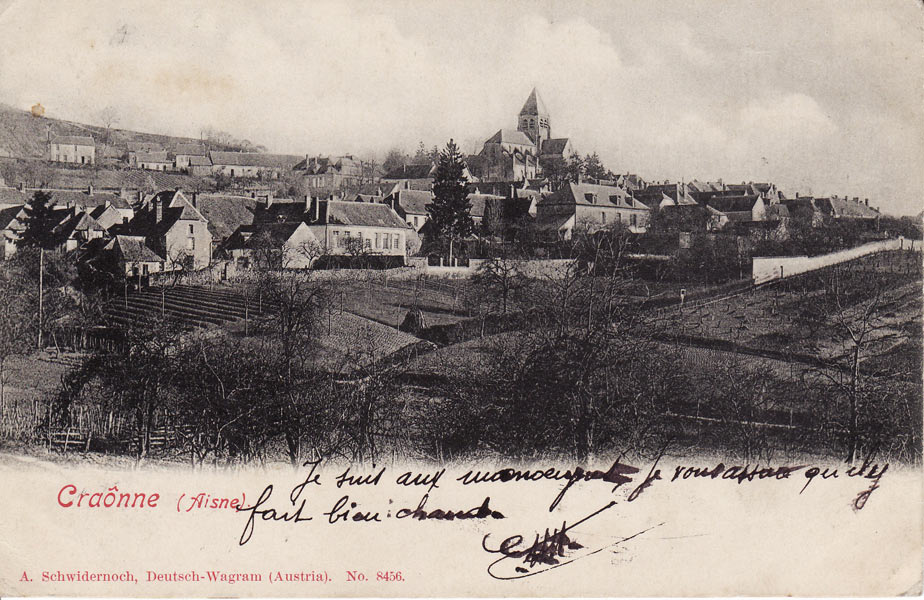 Je suis aux manoeuvres Je vous assure qu'il y
Craônne (Aisne)
fait bien chaud.
A. Schwidernoch, Deutsch-Wagram (Austria). No. 8456.